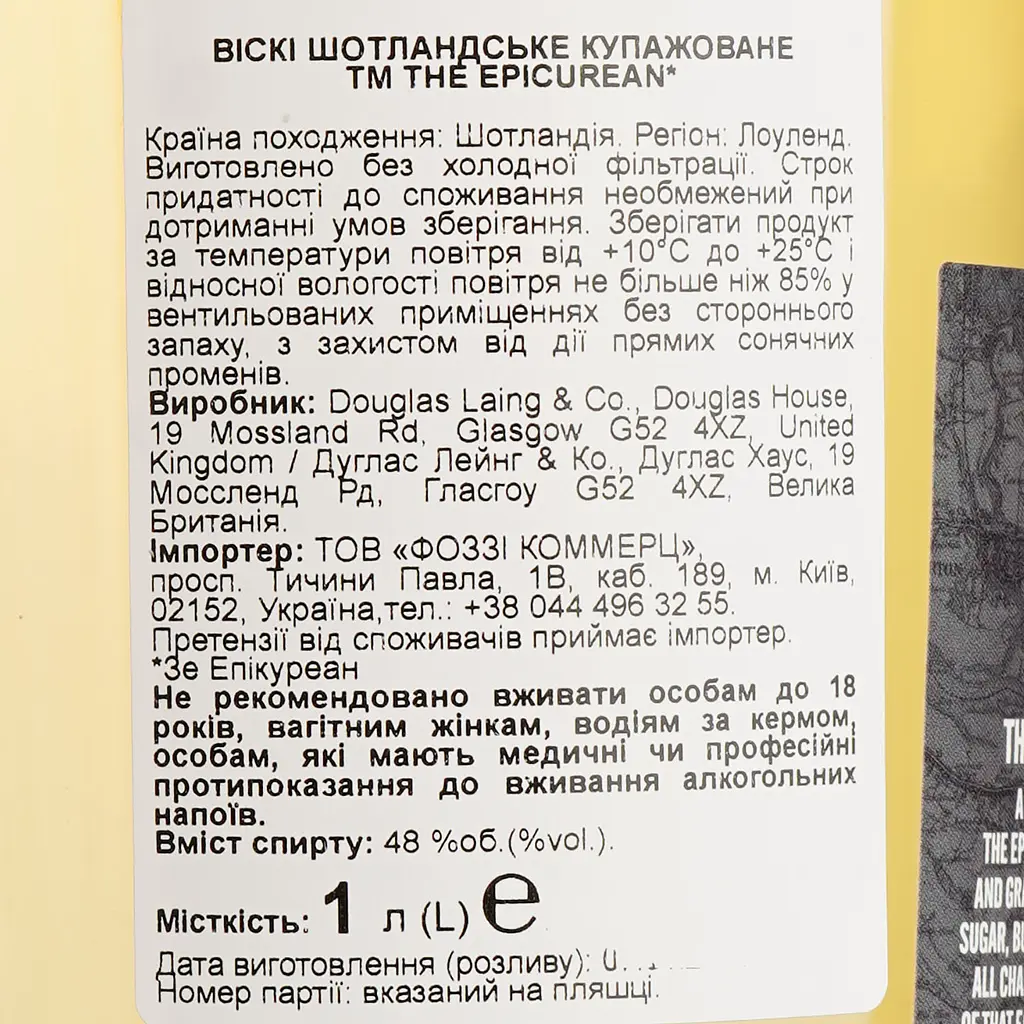 ВІСКІ ШОТЛАНДСЬКЕ КУПАЖОВАНЕ
ТМ THE EPICUREAN*
Країна походження: Шотландія. Регіон: Лоуленд.
Виготовлено без холодної фільтрації. Строк
придатності до споживання необмежений при
дотриманні умов зберігання. Зберігати продукт
за температури повітря від +10°C до +25°C і
відносної вологості повітря не більше ніж 85% у
вентильованих приміщеннях без стороннього
запаху, з захистом від дії прямих сонячних
променів.
Виробник: Douglas Laing & Co., Douglas House,
19 Mossland Rd, Glasgow G52 4XZ, United
Kingdom / Дуглас Лейнг & Ко., Дуглас Хаус, 19
Моссленд Рд, Гласгоу G52 4XZ, Велика
Британія.
Імпортер: ТОВ «ФОЗЗІ КОММЕРЦ»,
просп. Тичини Павла, 1В, каб. 189, м. Київ,
02152, Україна,тел.: +38 044 496 32 55.
Претензії від споживачів приймає імпортер.
*Зе Епікуреан
Не рекомендовано вживати особам до 18
років, вагітним жінкам, водіям за кермом,
особам, які мають медичні чи професійні
протипоказання до вживання алкогольних
напоїв.
Вміст спирту: 48 %об.(%vol.).
Місткість: 1 л (L) e
Дата виготовлення (розливу):
Номер партії: вказаний на пляшці.
THE
AND
SUGAR,
ALL
OF THAT